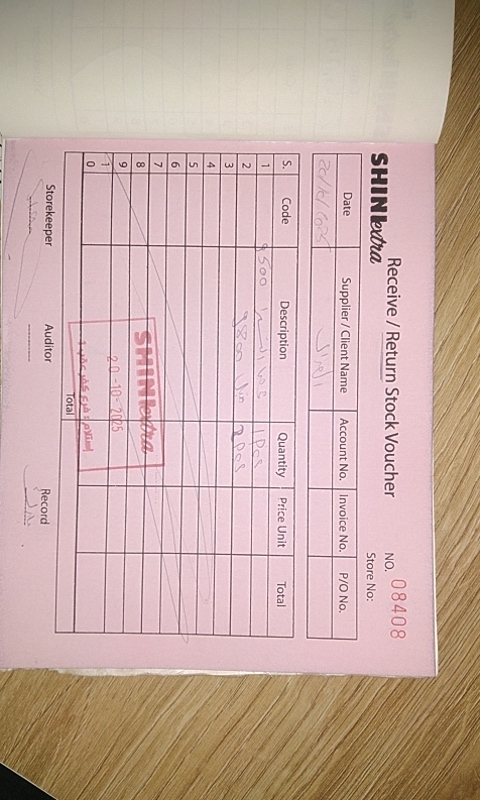 SHINextra
Receive / Return Stock Voucher
NO. 08408
Store No:
Date Supplier / Client Name Account No. Invoice No. P/O No.
20/10/2025
S. Code Description Quantity Price Unit Total
1 9500 1 Pcs
2 9800 2 Pcs
3
4
5
6
7
8
9
10
Total
SHINextra
20-10-2025
Storekeeper Auditor Record